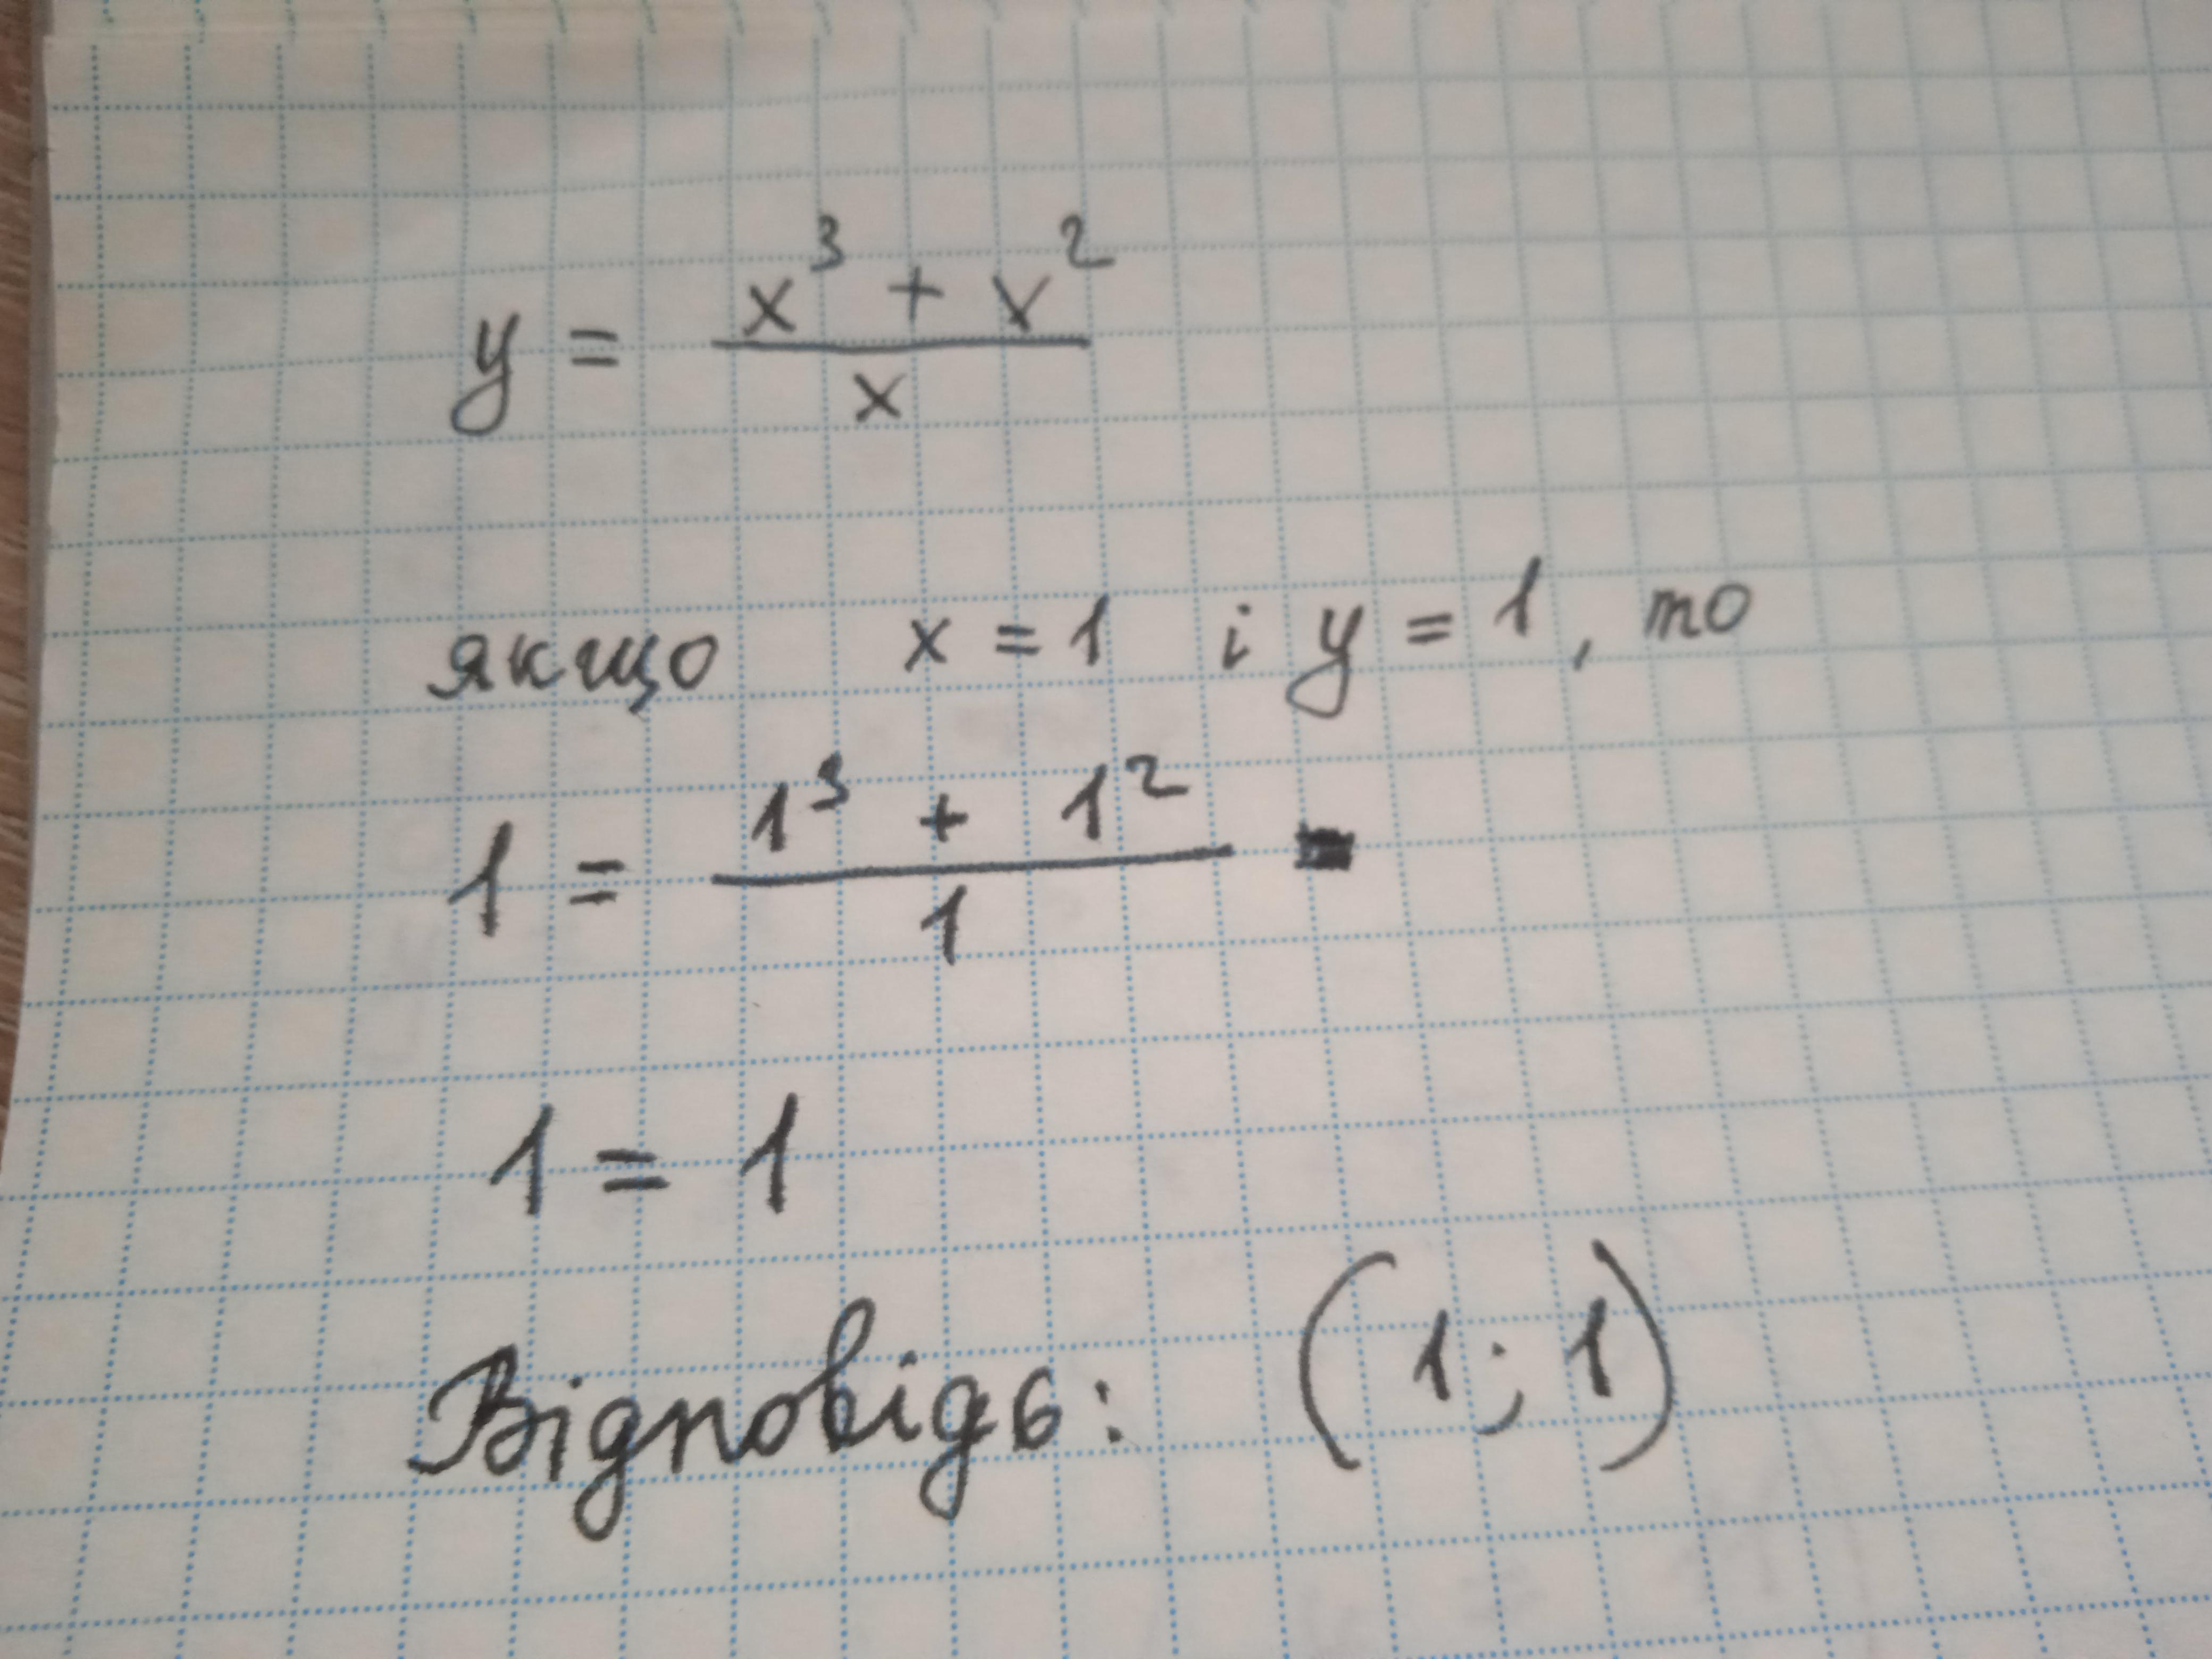 y = (x³ + x²) / x
якщо x = 1 і y = 1, то
1 = (1³ + 1²) / 1
1 = 1
Відповідь: (1; 1)